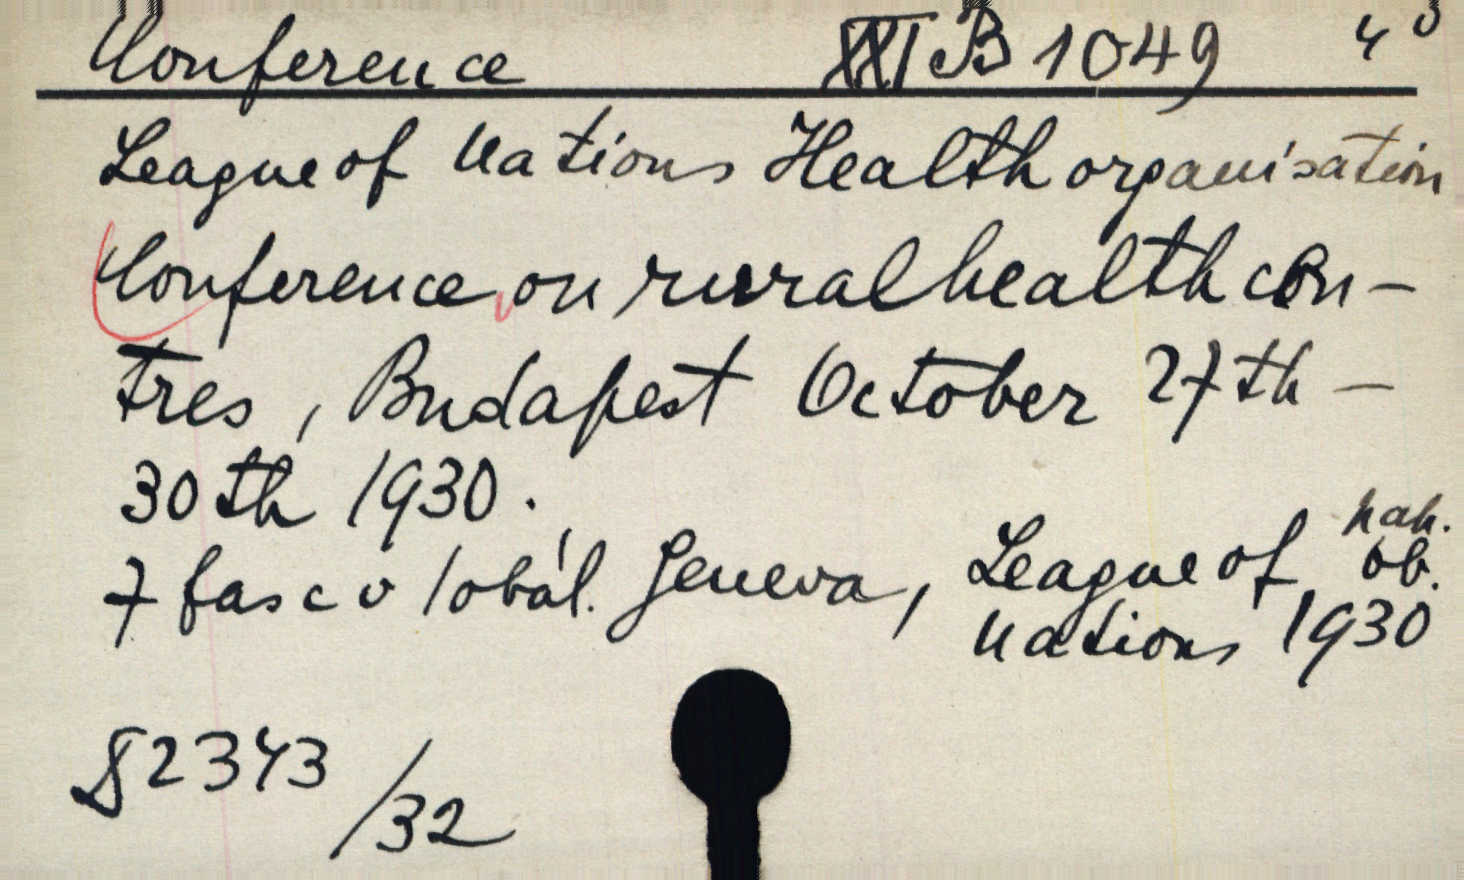 Conference XXI B 1049 4°
League of Nations Health organisation
Conference on rural health cen-
tres, Budapest October 27th -
30th 1930.
7 fasc v 1 obál. Geneva, League of nak. ob.
Nations 1930
§2343/32